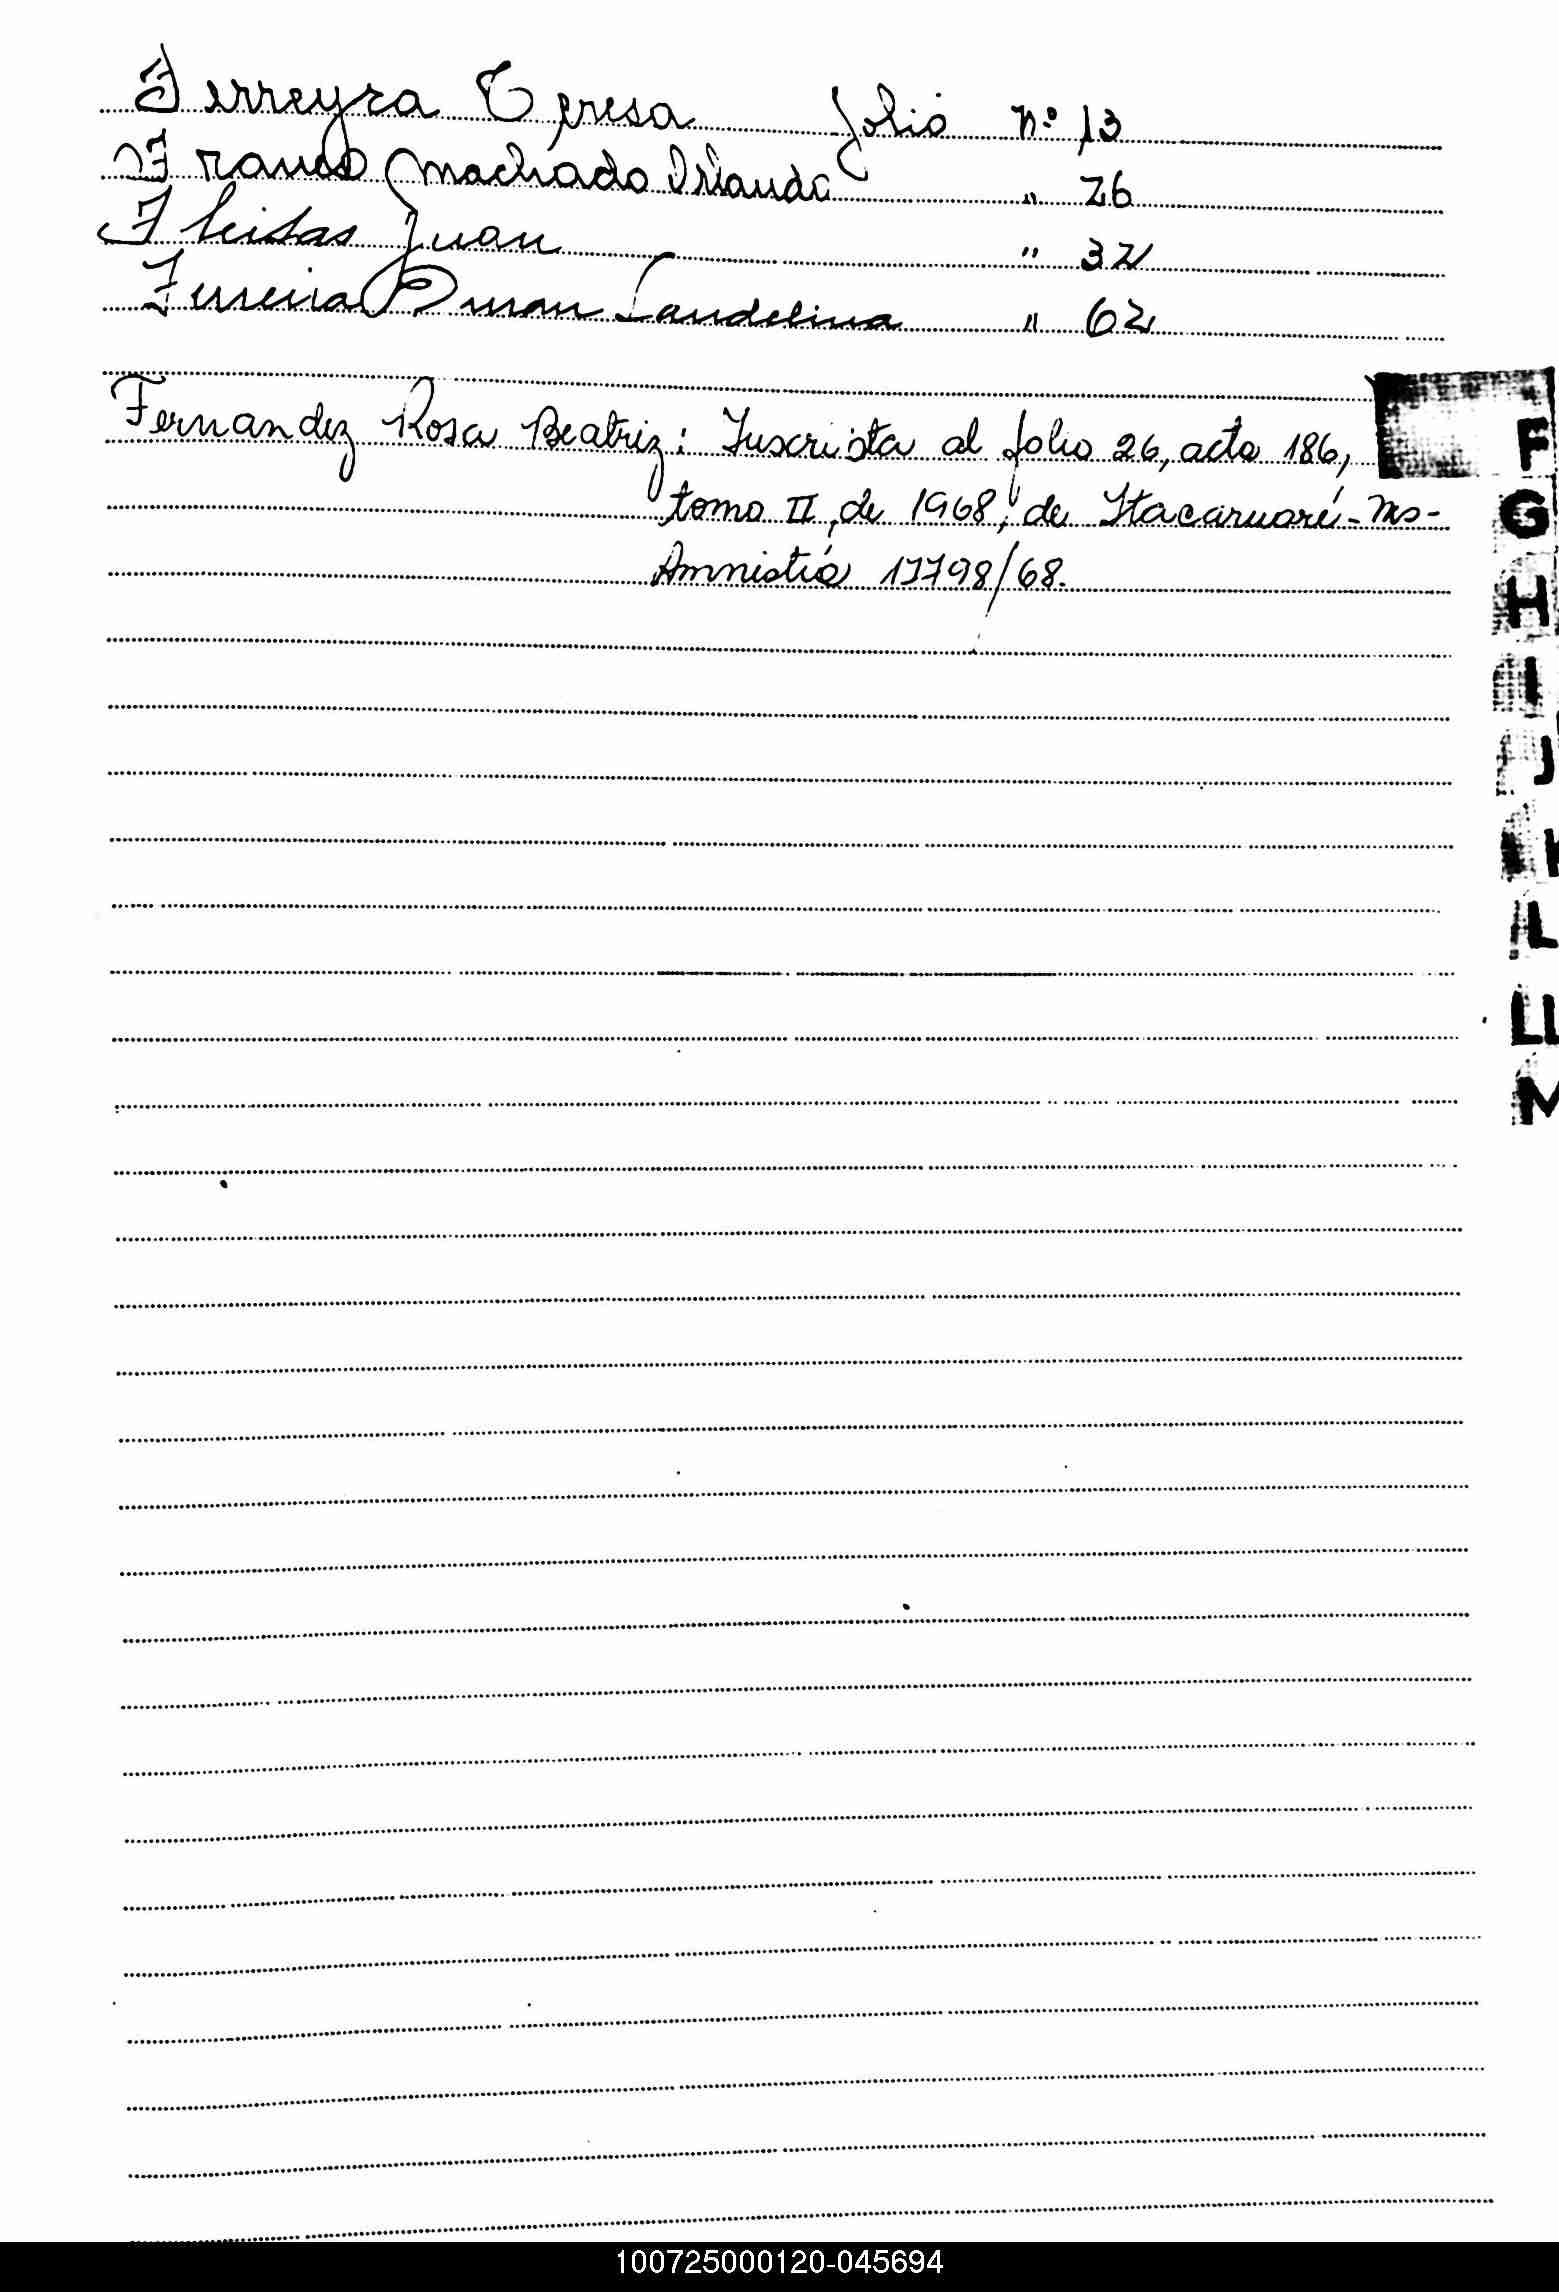 Ferreyra Teresa folio nº 13
Franco Machado Irlanda " 26
Fleitas Juan " 32
Ferreira Duran Candelina " 62
Fernandez Rosa Beatriz: Inscripta al folio 26, acta 186,
tomo II, de 1968, de Itacaruaré - Ms-
Amnistía 17798/68.
F
G
H
I
J
K
L
LL
M
100725000120-045694